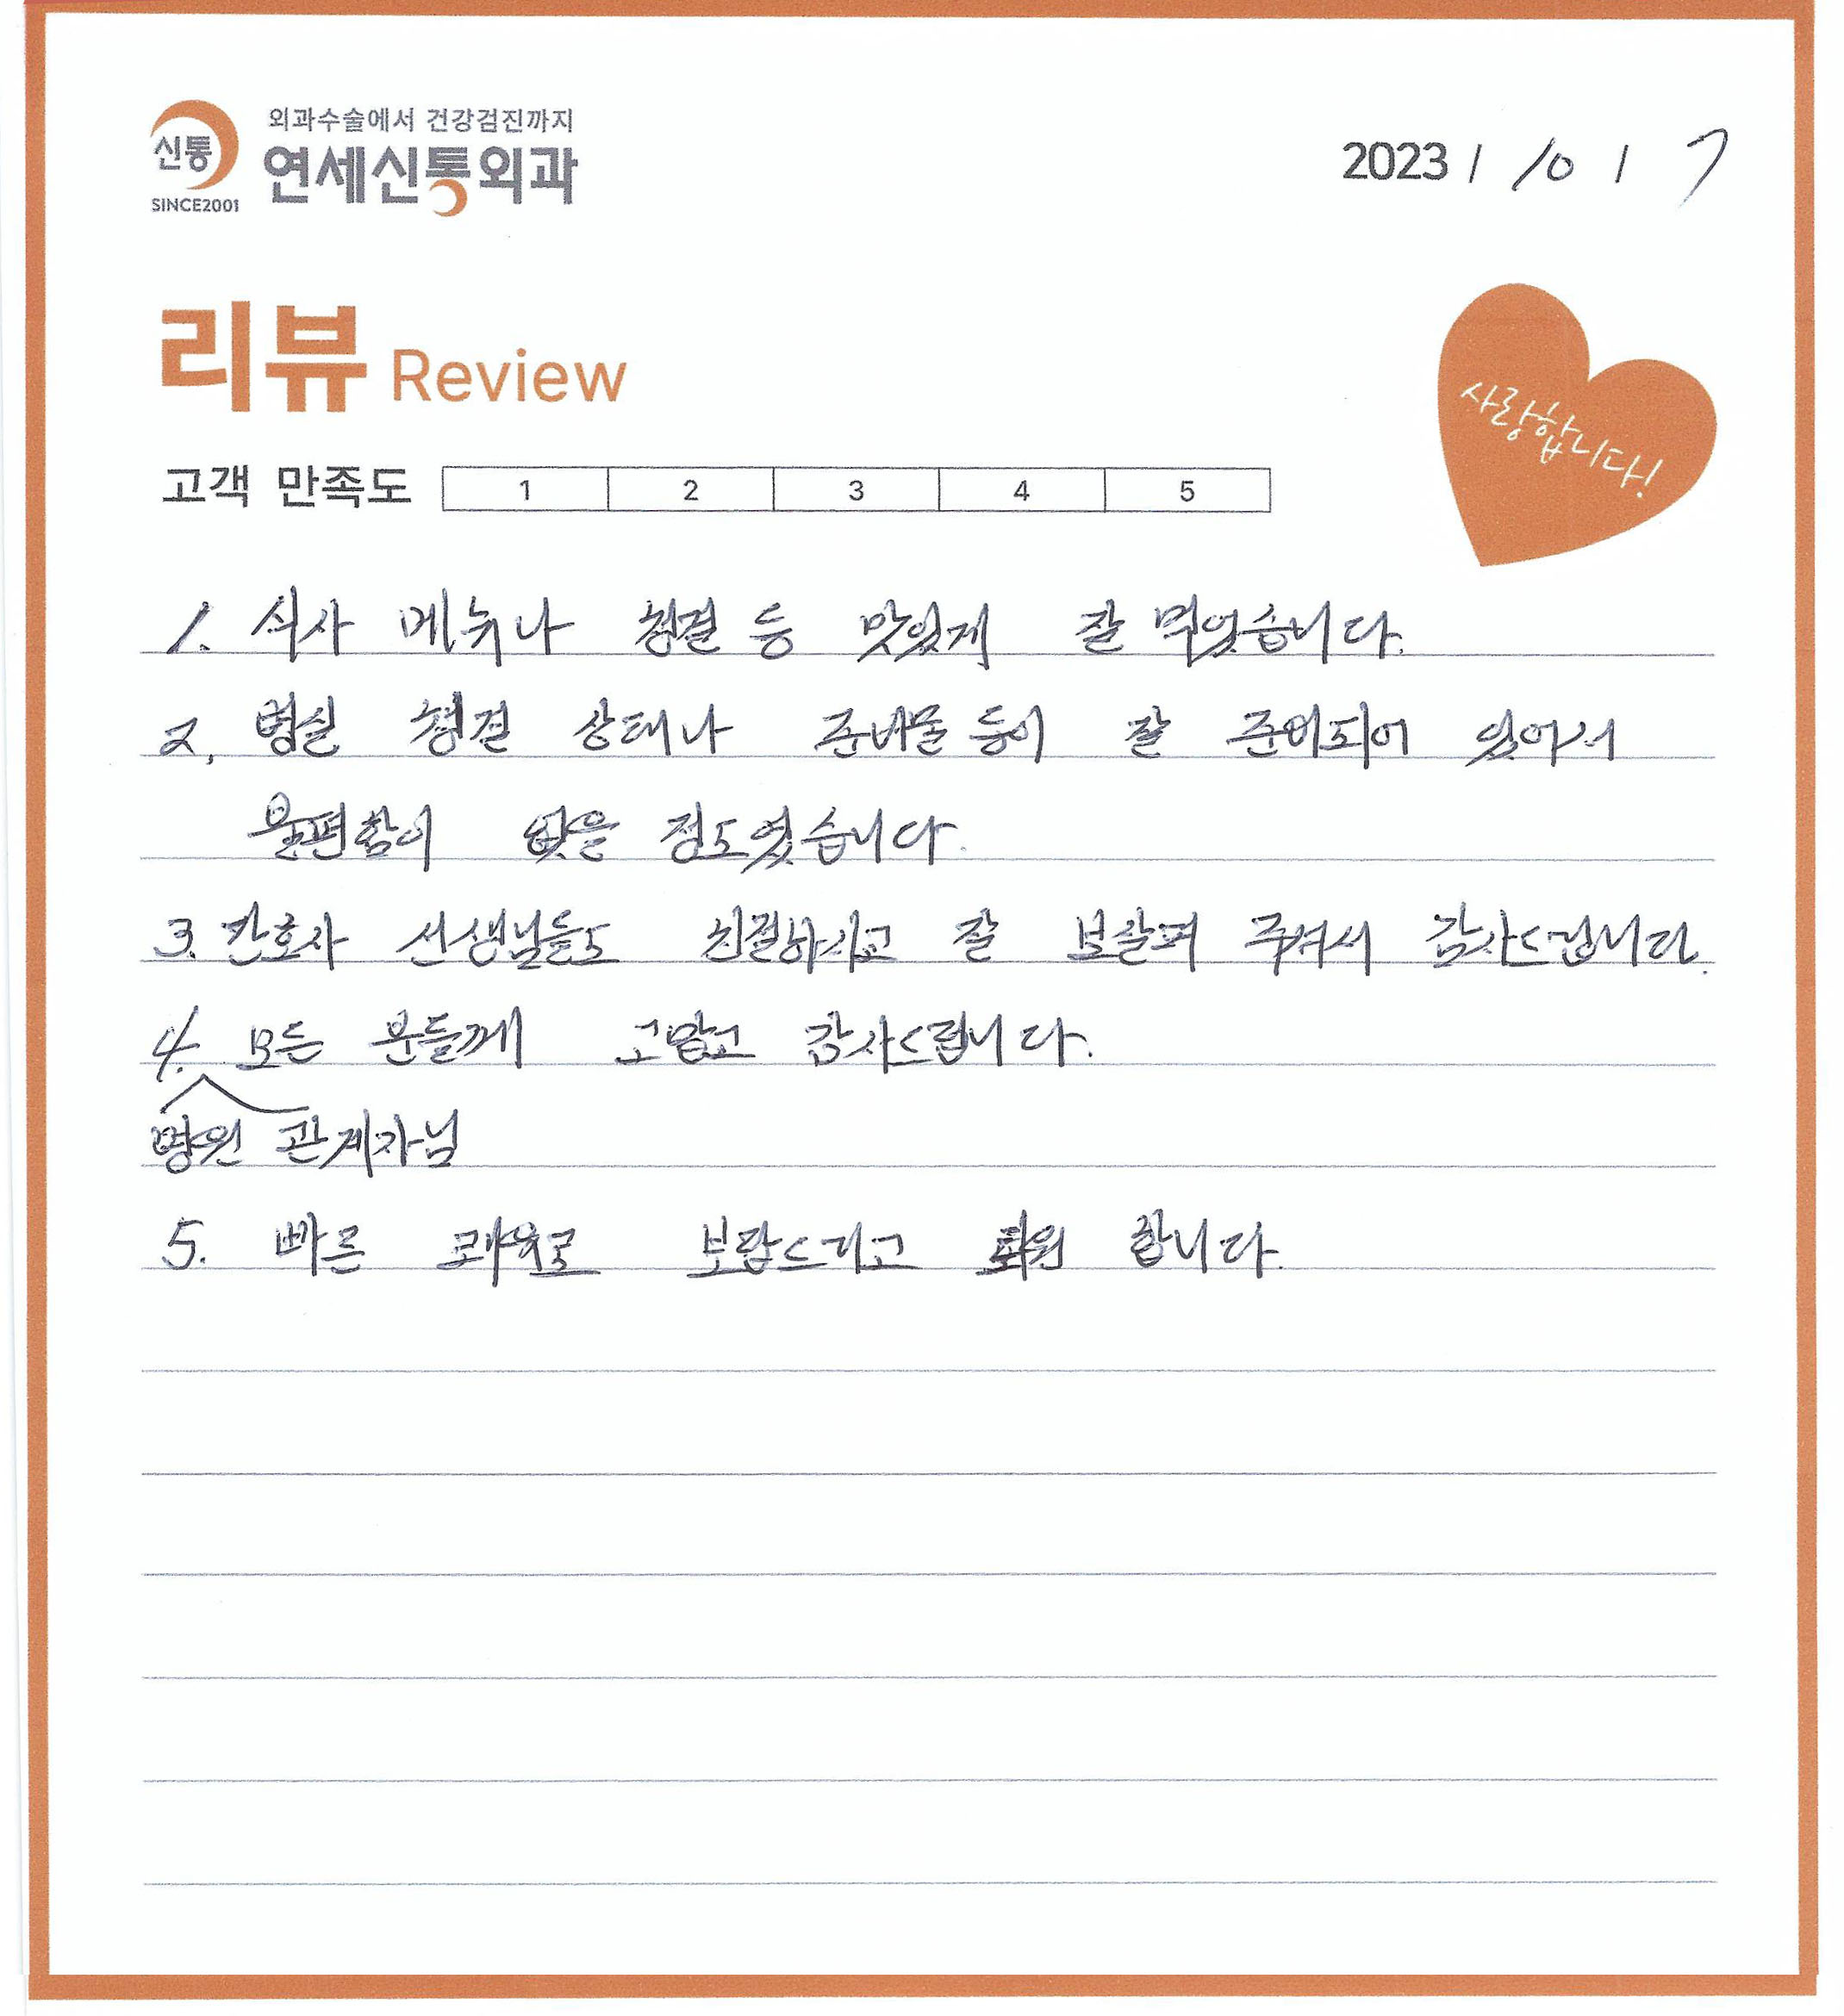 외과수술에서 건강검진까지
신통
연세신통외과
SINCE2001
2023 / 10 / 7
리뷰 Review
사랑합니다!
고객 만족도 1 2 3 4 5
1. 식사 메뉴나 청결 등 맛있게 잘 먹었습니다.
2. 병실 청결 상태나 준비물 등이 잘 준비되어 있어서
불편함이 없을 정도였습니다.
3. 간호사 선생님들도 친절하시고 잘 보살펴 주셔서 감사드립니다.
4. 모든 분들께 고맙고 감사드립니다.
병원 관계자님
5. 빠른 쾌유로 보답드리고 퇴원 합니다.